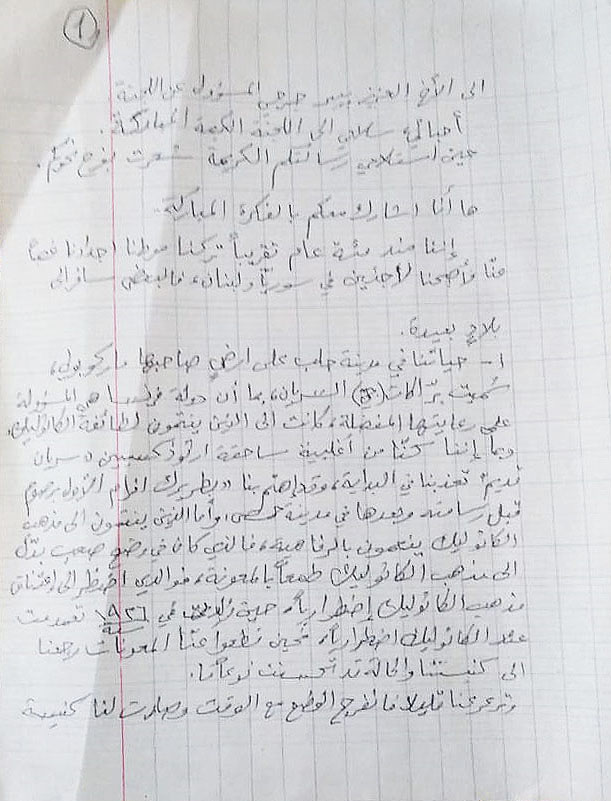 1
الى الأخ العزيز بيير جرجي المسؤول عن اللجنة
أحبائي سلامي الى اللجنة الكريمة المباركة.
حين استلامي رسالتكم الكريمة شعرت بفرح نحوكم.
ها أنا اشارك معكم بالفكرة المباركة.
إننا منذ مئة عام تقريباً تركنا موطن اجدادنا
منّا وأصبحنا لاجئين في سوريا ولبنان، والبعض سافر الى
بلاد بعيدة.
١- حياتنا في مدينة حلب على ارض صاحبها ماركوبولي،
سُميت برّاكات (حي) السريان، بما أن دولة فرنسا هي المسؤولة
على رعايتها المفضلة، كانت الى الذين ينتمون لطائفة الكاثوليك.
وبما إننا كنّا من أغلبية ساحقة ارثوذكسيين سريان
قديم تعذبنا في البداية، وقد اهتم بنا البطريرك افرام الأول برصوم
قبل رسامته وبعدها في مدينة حمص، وأما الذين ينتمون الى مذهب
الكاثوليك ينعمون بالرفاهية، فالذي كان في وضع صعب بدّل
الى مذهب الكاثوليك طمعاً بالمعونة، فوالدي اضطر الى اعتناق
مذهب الكاثوليك إضطرارياً، حين ولادتي في سنة ١٩٢٦ تعمدت
عند الكاثوليك اضطرارياً، فحين قطعوا عنّا المعونات رجعنا
الى كنيستنا والحالة قد تحسنت نوعاً ما.
وترعرعنا قليلا فانفرج الوضع مع الوقت وصارت لنا كنيسة